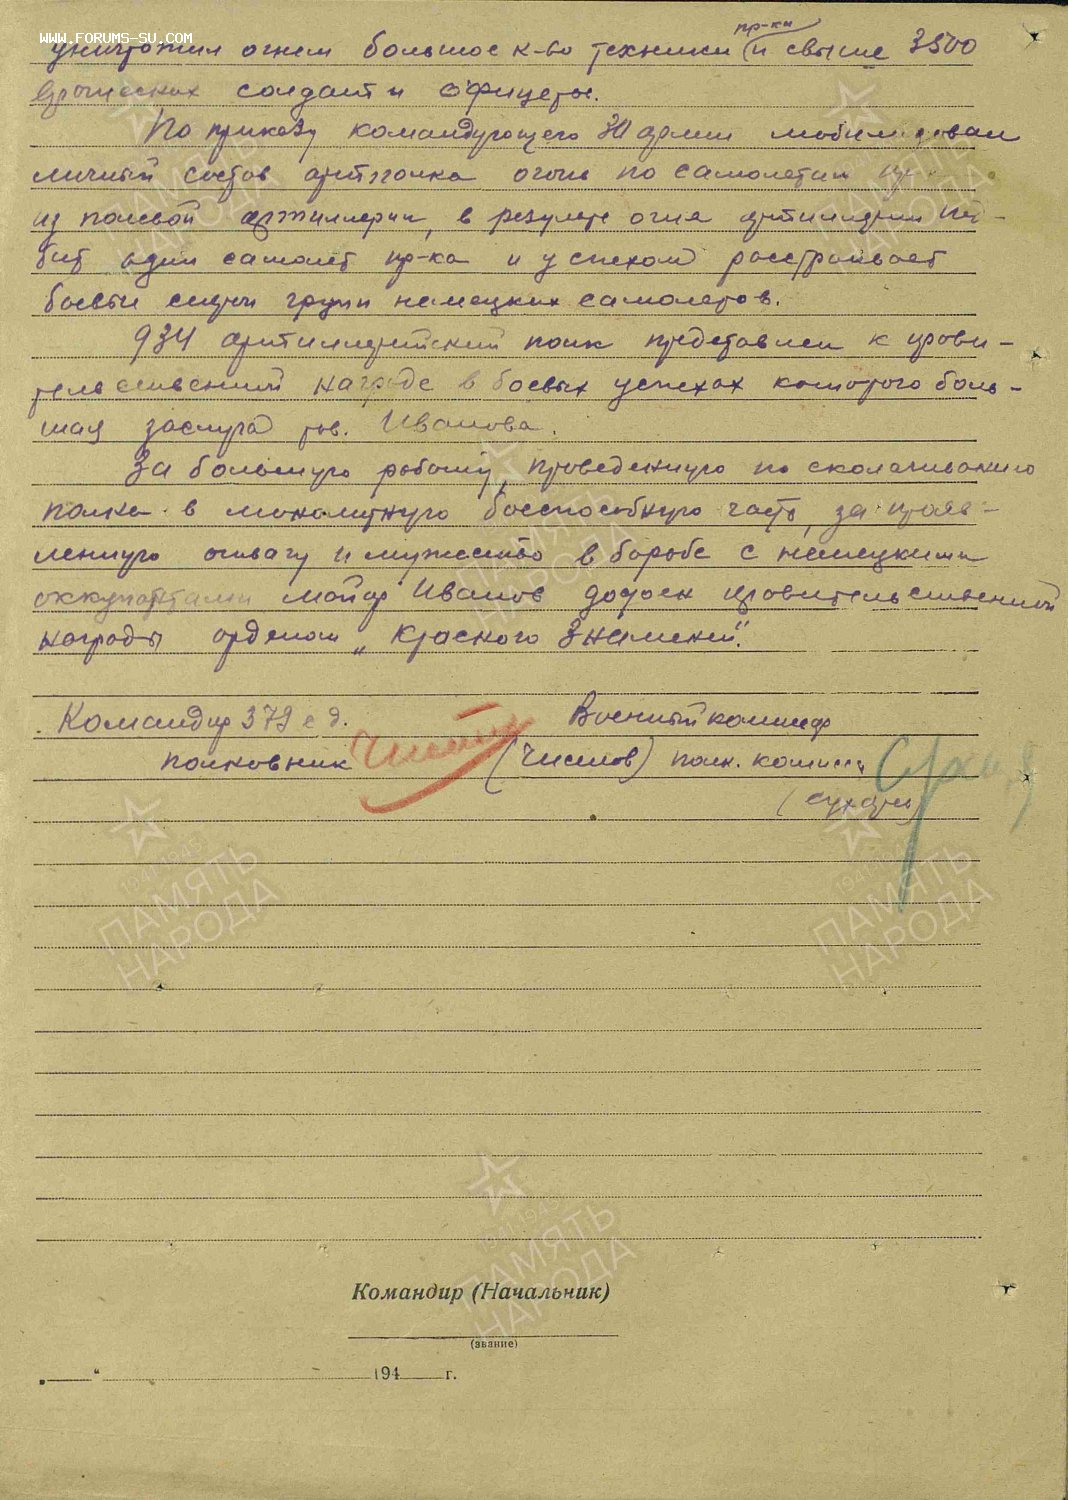 www.forums-su.com
пр-ка
уничтожил огнем большое к-во техники и свыше 3500
вражеских солдат и офицеров.
По приказу командующего 30 армии мобилизовал
личный состав артполка огонь по самолетам
из полевой артиллерии, в результ огня артиллерии под-
бит один самолет пр-ка и успехом расстраивает
боевые групп немецких самолетов.
934 артиллерийский полк представлен к прави-
тельственной награде в боевых успехах которого боль-
шая заслуга тов. Иванова.
За большую работу, проведенную по сколачиванию
полка в монолитную боеспособную часть, за прояв-
ленную отвагу и мужество в борьбе с немецкими
оккупантами майор Иванов достоен правительственной
награды орденом „Красного Знамени".
Командир 379 с д. Военный комиссар
полковник (Чистов) полк. комисс
(Сухарев)
1941-1945
ПАМЯТЬ
НАРОДА
Командир (Начальник)
(звание)
„ “ 194 г.